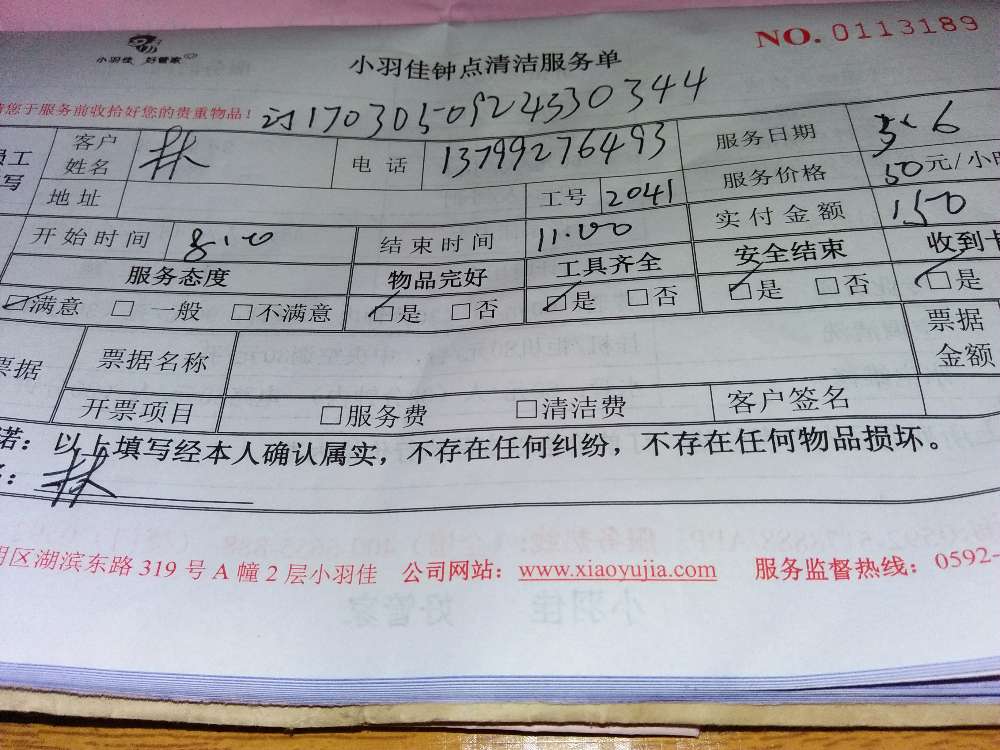 NO. 0113189
小羽佳 好管家
小羽佳钟点清洁服务单
请您于服务前收拾好您的贵重物品！
1703050924530344
员工
填写
客户姓名 林 电话 13799276493 服务日期 3.6
地址 工号 2041 服务价格 50元/小时
开始时间 8:00 结束时间 11.00 实付金额 150
服务态度 物品完好 工具齐全 安全结束 收到卡
□满意 □一般 □不满意 □是 □否 □是 □否 □是 □否 □是
票据 票据名称 票据金额
开票项目 □服务费 □清洁费 客户签名
诺：以上填写经本人确认属实，不存在任何纠纷，不存在任何物品损坏。
：林
明区湖滨东路 319 号 A 幢 2 层小羽佳 公司网站：www.xiaoyujia.com 服务监督热线：0592-